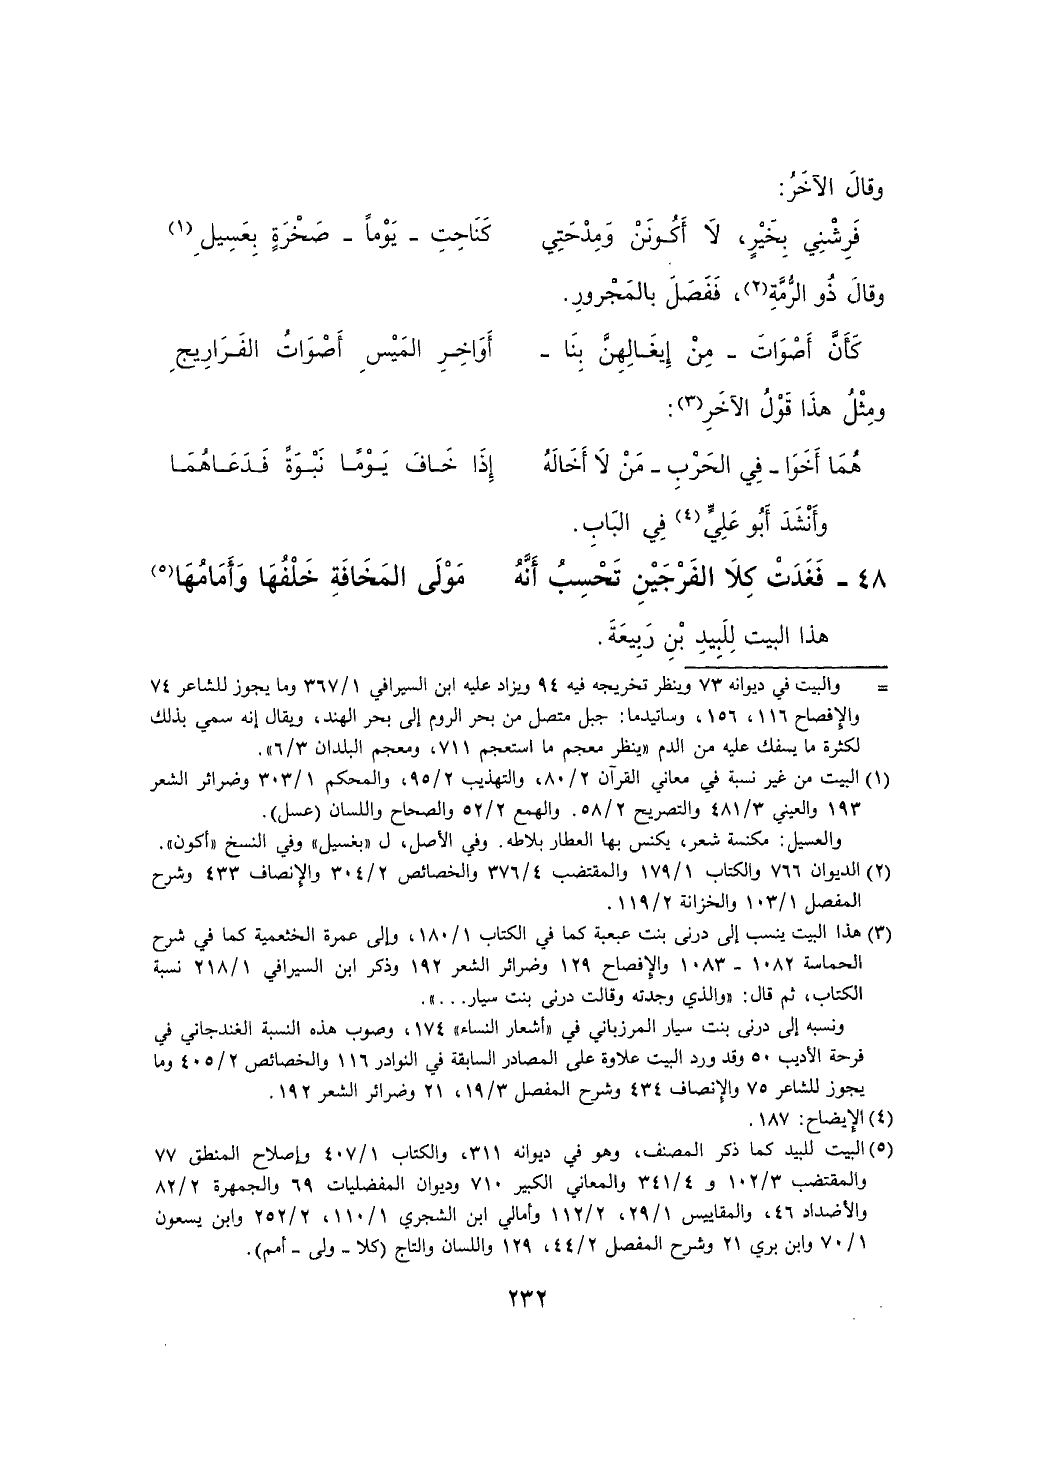 وقالَ الآخَرُ:
فَرِشْنِي بِخَيْرٍ، لَا أَكُونَنْ وَمِدْحَتِي كَنَاحِتِ - يَوْماً - صَخْرَةٍ بِعَسِيلِ(١)
وقالَ ذُو الرُّمَّةِ(٢)، فَفَصَلَ بالمَجْرورِ.
كَأَنَّ أَصْوَاتَ - مِنْ إيغَالِهِنَّ بِنَا - أَوَاخِرِ المَيْسِ أَصْوَاتُ الفَرَارِيجِ
ومِثْلُ هذَا قَوْلُ الآخَرِ(٣):
هُمَا أَخَوَا - فِي الحَرْبِ - مَنْ لَا أَخَالَهُ إِذَا خَافَ يَوْمًا نَبْوَةً فَدَعَاهُمَا
وأَنْشَدَ أَبُو عَلِيٍّ(٤) فِي البَابِ.
٤٨ - فَغَدَتْ كِلَا الفَرْجَيْنِ تَحْسِبُ أَنَّهُ مَوْلَى المَخَافَةِ خَلْفُهَا وَأَمَامُهَا(٥)
هذا البيت لِلَبِيدِ بْنِ رَبِيعَةَ.
= والبيت في ديوانه ٧٣ وينظر تخريجه فيه ٩٤ ويزاد عليه ابن السيرافي ٣٦٧/١ وما يجوز للشاعر ٧٤
والإفصاح ١١٦، ١٥٦، وساتيدما: جبل متصل من بحر الروم إلى بحر الهند، ويقال إنه سمي بذلك
لكثرة ما يسفك عليه من الدم «ينظر معجم ما استعجم ٧١١، ومعجم البلدان ٦/٣».
(١) البيت من غير نسبة في معاني القرآن ٨٠/٢، والتهذيب ٩٥/٢، والمحكم ٣٠٣/١ وضرائر الشعر
١٩٣ والعيني ٤٨١/٣ والتصريح ٥٨/٢. والهمع ٥٢/٢ والصحاح واللسان (عسل).
والعسيل: مكنسة شعر، يكنس بها العطار بلاطه. وفي الأصل، ل «بغسيل» وفي النسخ «أكون».
(٢) الديوان ٧٦٦ والكتاب ١٧٩/١ والمقتضب ٣٧٦/٤ والخصائص ٣٠٤/٢ والإنصاف ٤٣٣ وشرح
المفصل ١٠٣/١ والخزانة ١١٩/٢.
(٣) هذا البيت ينسب إلى درنى بنت عبعبة كما في الكتاب ١٨٠/١، وإلى عمرة الخثعمية كما في شرح
الحماسة ١٠٨٢ - ١٠٨٣ والإفصاح ١٢٩ وضرائر الشعر ١٩٢ وذكر ابن السيرافي ٢١٨/١ نسبة
الكتاب، ثم قال: «والذي وجدته وقالت درنى بنت سيار...».
ونسبه إلى درنى بنت سيار المرزباني في «أشعار النساء» ١٧٤، وصوب هذه النسبة الغندجاني في
فرحة الأديب ٥٠ وقد ورد البيت علاوة على المصادر السابقة في النوادر ١١٦ والخصائص ٤٠٥/٢ وما
يجوز للشاعر ٧٥ والإنصاف ٤٣٤ وشرح المفصل ١٩/٣، ٢١ وضرائر الشعر ١٩٢.
(٤) الإيضاح: ١٨٧.
(٥) البيت للبيد كما ذكر المصنف، وهو في ديوانه ٣١١، والكتاب ٤٠٧/١ وإصلاح المنطق ٧٧
والمقتضب ١٠٢/٣ و ٣٤١/٤ والمعاني الكبير ٧١٠ وديوان المفضليات ٦٩ والجمهرة ٨٢/٢
والأضداد ٤٦، والمقاييس ٢٩/١، ١١٢/٢ وأمالي ابن الشجري ١١٠/١، ٢٥٢/٢ وابن يسعون
٧٠/١ وابن بري ٢١ وشرح المفصل ٤٤/٢، ١٢٩ واللسان والتاج (كلا - ولى - أمم).
٢٣٢